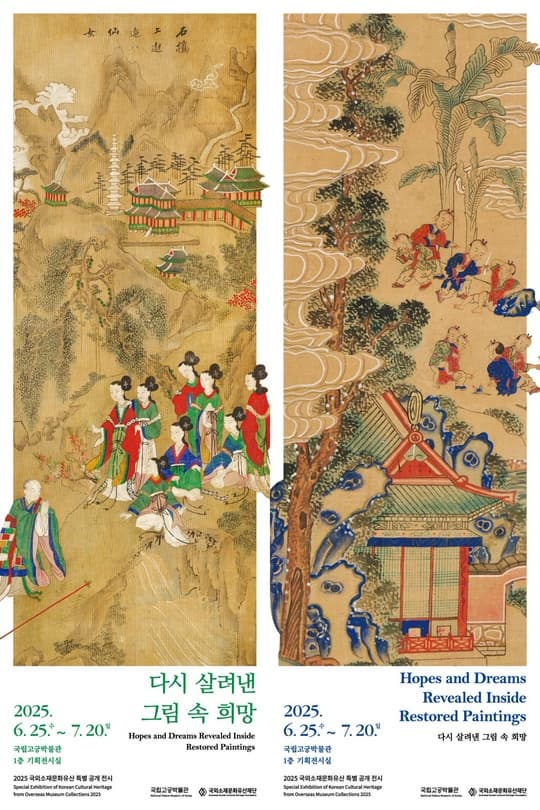 石橋
上
仙
女
다시 살려낸
그림 속 희망
Hopes and Dreams Revealed Inside
Restored Paintings
2025.
6. 25.수 ~ 7. 20.일
국립고궁박물관
1층 기획전시실
2025 국외소재문화유산 특별 공개 전시
Special Exhibition of Korean Cultural Heritage
from Overseas Museum Collections 2025
국립고궁박물관
국외소재문화유산재단
Hopes and Dreams
Revealed Inside
Restored Paintings
다시 살려낸 그림 속 희망
2025.
6. 25.수 ~ 7. 20.일
국립고궁박물관
1층 기획전시실
2025 국외소재문화유산 특별 공개 전시
Special Exhibition of Korean Cultural Heritage
from Overseas Museum Collections 2025
국립고궁박물관
국외소재문화유산재단